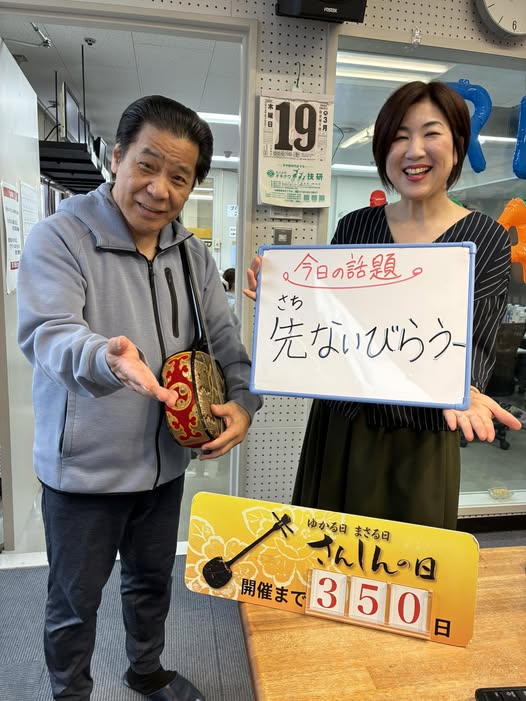 FOSTEX
木曜日
19
3月
技研
今日の話題
さち
先ないびらうー
ゆかる日 まさる日
さんしんの日
開催まで
350
日